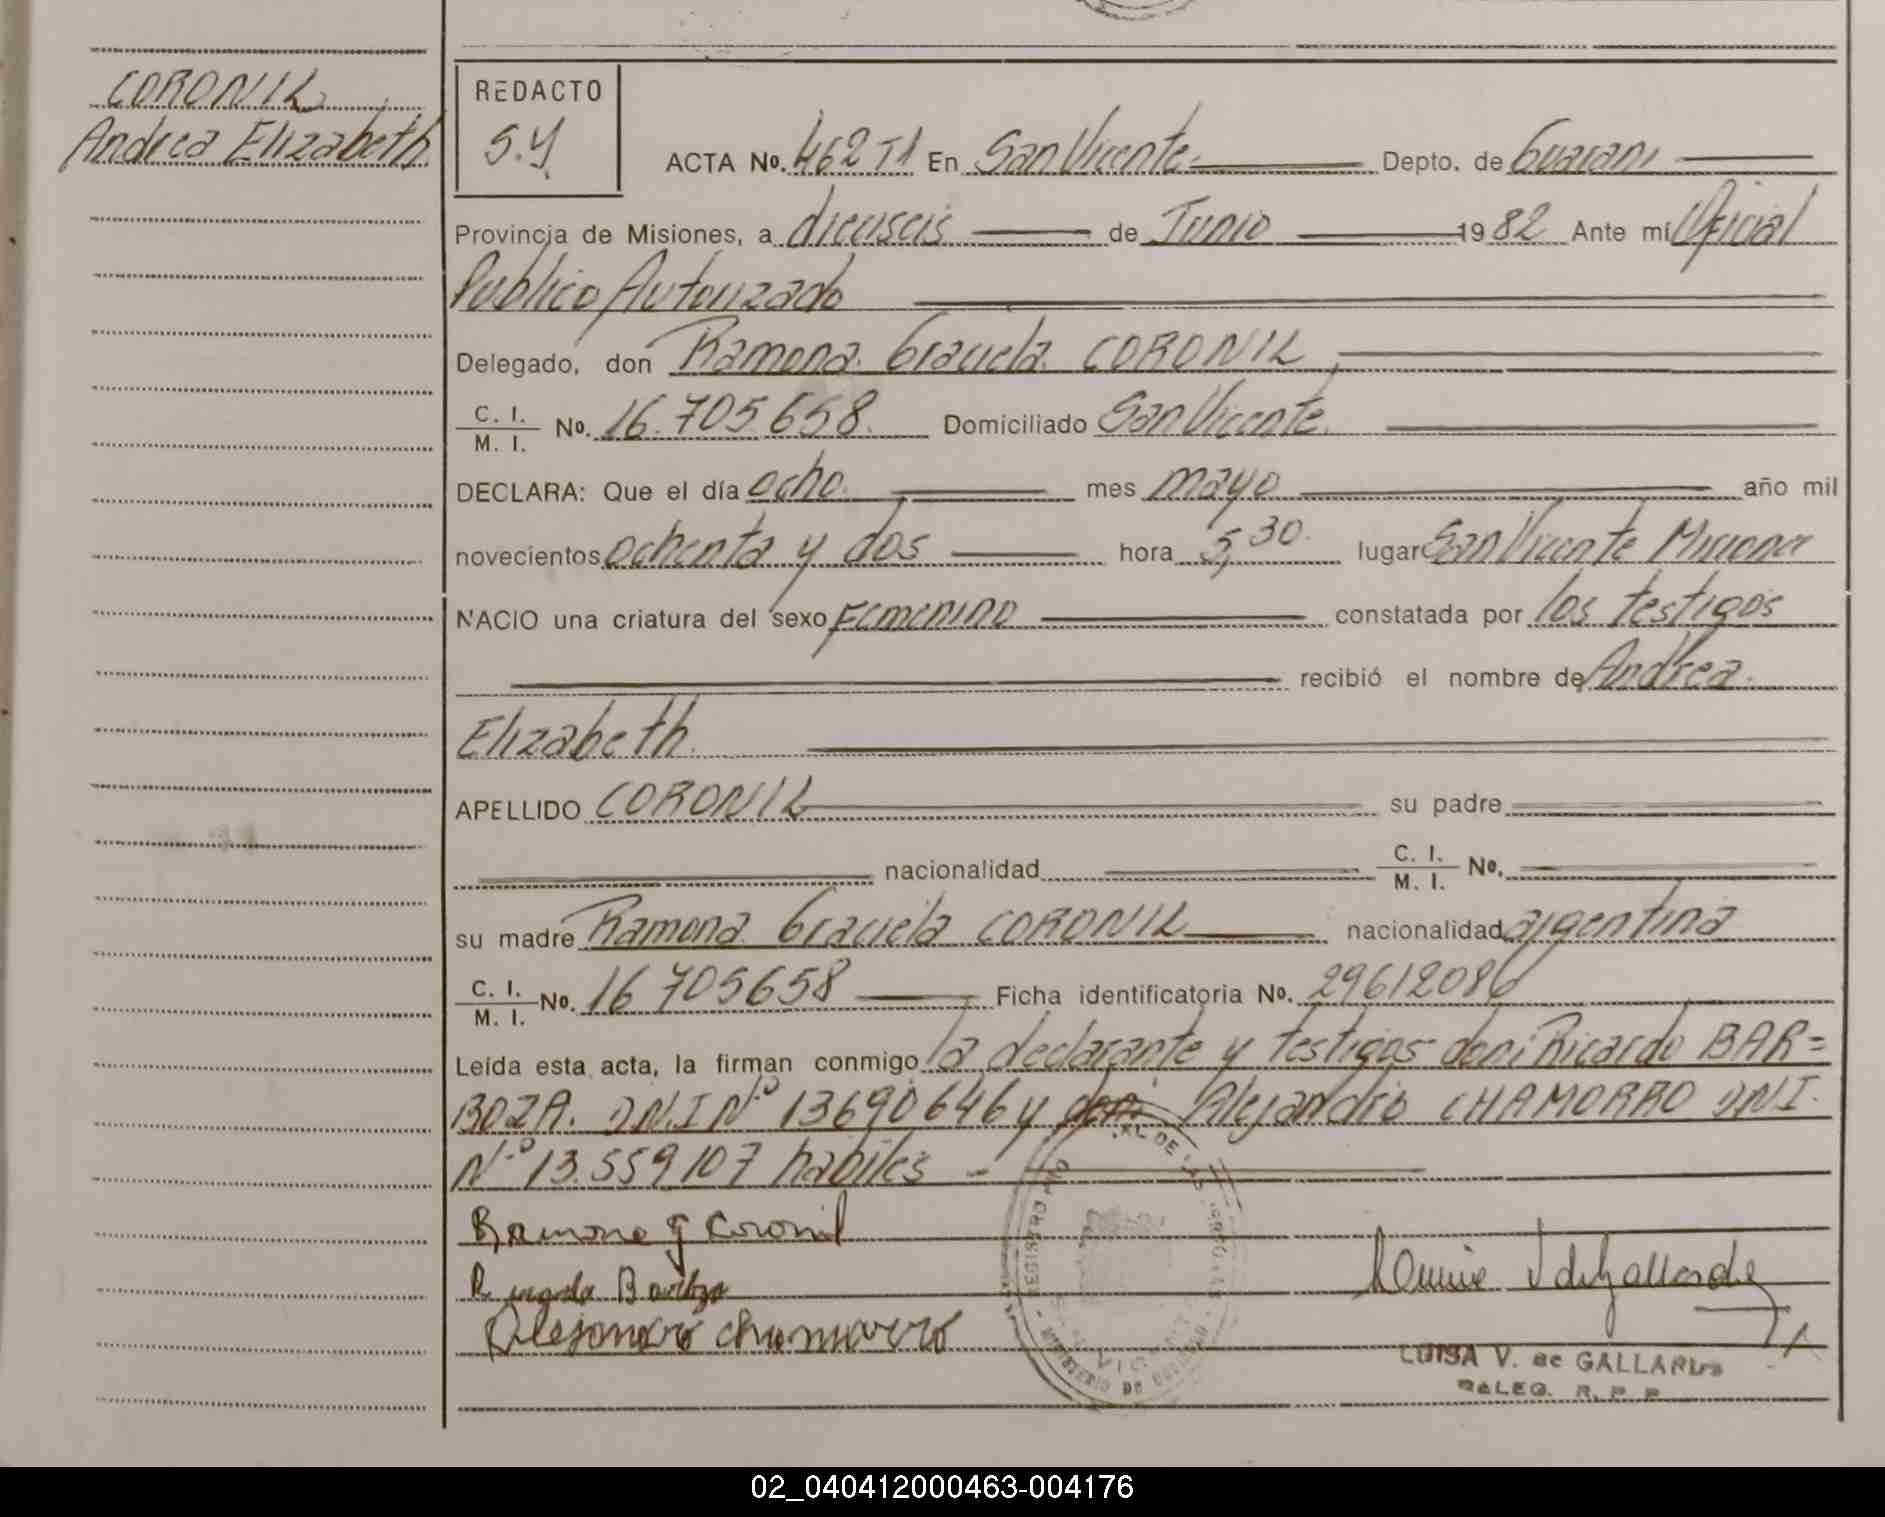 CORONIL
Andrea Elizabeth
REDACTO
S.Y.
ACTA No. 462 T1 En San Vicente Depto. de Guarani
Provincia de Misiones, a dieciseis de Junio 1982 Ante mí Oficial
Publico Autorizado
Delegado, don Ramona Graciela CORONIL
C. I. / M. I. No. 16.705.658. Domiciliado San Vicente.
DECLARA: Que el día ocho. mes mayo año mil
novecientos ochenta y dos hora 5,30. lugar San Vicente Misiones
NACIO una criatura del sexo Femenino constatada por los testigos
recibió el nombre de Andrea
Elizabeth
APELLIDO CORONIL su padre
nacionalidad C. I. / M. I. No.
su madre Ramona Graciela CORONIL nacionalidad argentina
C. I. / M. I. No. 16 705658 Ficha identificatoria No. 29612086
Leída esta acta, la firman conmigo la declarante y testigos don: Ricardo BAR=
BOZA. DN.I Nº 13690646 y don: Alejandro CHAMORRO DNI.
Nº 13.559107 habiles -
Ramona G Coronil
Ricardo Barboza
Alejandro chamorro
LUISA V. de GALLARDO
DELEG. R. P. P.
02_040412000463-004176